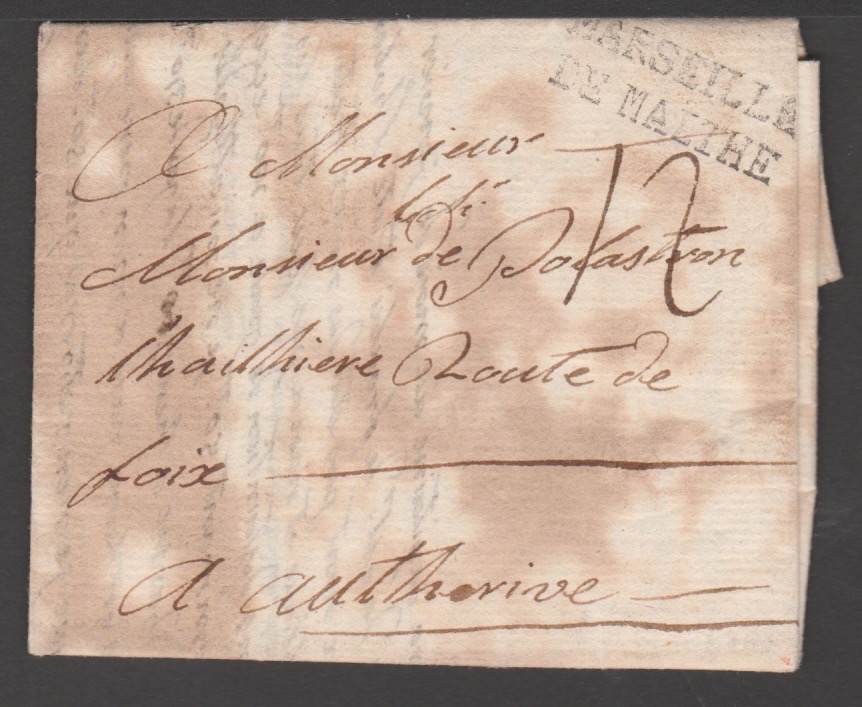 MARSEILLE
DE MALTHE
A Monsieur
12
Monsieur de Polastron
lhailhiere Route de
foix
A autherive